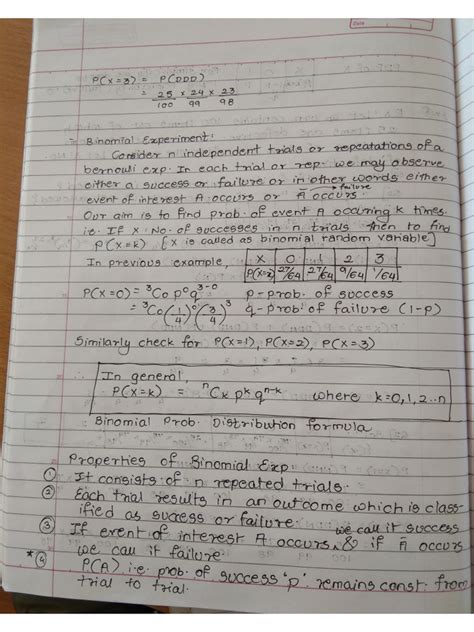 P(X=3) = P(DDD)
= 25/100 × 24/99 × 23/98
:- Binomial Experiment:
Consider n independent trials or repeatations of a
bernouli exp. In each trial or rep. we may observe
either a success or failure or in other words either
event of interest A occurs or Ā occurs → failure
Our aim is to find prob. of event A occuring k times.
i.e. If X = No. of successes in n trials then to find
P(X=k) [X is called as binomial random variable]
In previous example,
X 0 1 2 3
P(X=x) 27/64 27/64 9/64 1/64
P(X=0) = ³C₀ p⁰ q³⁻⁰ p - prob. of success
= ³C₀ (1/4)⁰ (3/4)³ q - prob. of failure (1-p)
Similarly check for P(X=1), P(X=2), P(X=3)
In general,
P(X=k) = ⁿCₖ pᵏ qⁿ⁻ᵏ where k=0,1,2..n
Binomial Prob. Distribution formula
Properties of Binomial Exp
① It consists of n repeated trials.
② Each trial results in an outcome which is class-
ified as success or failure.
③ If event of interest A occurs, we call it success & if Ā occurs
we call it failure
*④ P(A) i.e. prob. of success 'p' remains const. from
trial to trial.